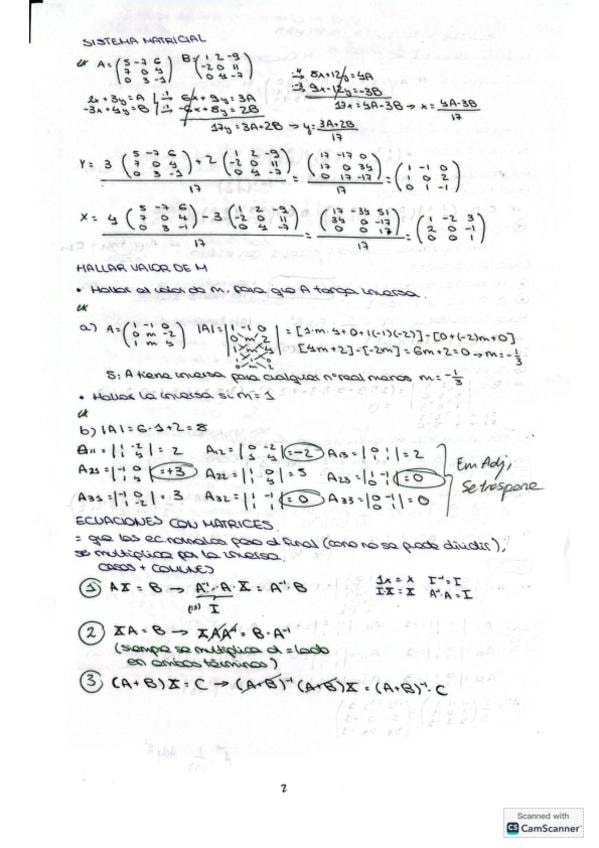 SISTEMA MATRICIAL
Ex A = (5 -7 6 / 7 0 4 / 0 3 -1) B = (1 2 -9 / -2 0 11 / 0 4 -7)
2x + 3y = A | ·3 → 6x + 9y = 3A
-3x + 4y = B | ·2 → -6x + 8y = 2B
17y = 3A + 2B → y = 3A+2B / 17
·4 → 8x + 12y = 4A
9x - 12y = -3B
17x = 4A - 3B → x = 4A-3B / 17
Y = 3 (5 -7 6 / 7 0 4 / 0 3 -1) + 2 (1 2 -9 / -2 0 11 / 0 4 -7) / 17 = (17 -17 0 / 17 0 34 / 0 17 -17) / 17 = (1 -1 0 / 1 0 2 / 0 1 -1)
X = 4 (5 -7 6 / 7 0 4 / 0 3 -1) - 3 (1 2 -9 / -2 0 11 / 0 4 -7) / 17 = (17 -34 51 / 34 0 -17 / 0 0 17) / 17 = (1 -2 3 / 2 0 -1 / 0 0 1)
HALLAR VALOR DE M
• Hallar el valor de m, para que A tenga inversa.
Ex
a) A = (1 -1 0 / 0 m -2 / 1 m 4) |A| = |1 -1 0 / 0 m 2 / 1 m 4| = [1·m·4+0+1(-1)(-2)] - [0+(-2)m+0]
[4m+2] - [-2m] = 6m+2 = 0 → m = -1/3
S: A tiene inversa para cualquier nº real menos m = -1/3
• Hallar la inversa si m = 1
Ex
b) |A| = 6·1+2 = 8
A11 = |1 -2 / 1 4| = 2 A12 = |0 -2 / 1 4| = -2 A13 = |0 1 / 1 1| = 2
A21 = |-1 0 / 1 4| = +3 A22 = |1 0 / 1 4| = 5 A23 = |1 -1 / 1 1| = 0
A31 = |-1 0 / 1 -2| = 3 A32 = |1 -1 / 1 1| = 0 A33 = |0 -1 / 1 1| = 0
En Adj,
Se traspone
ECUACIONES CON MATRICES
= que las ec. normales pero al final (como no se puede dividir),
se multiplica por la inversa.
CASOS + COMUNES
① AX = B → A⁻¹·A·X = A⁻¹·B
I
1x = x I⁻¹ = I
I·X = X A⁻¹·A = I
② XA = B → XAA⁻¹ = B·A⁻¹
(siempre se multiplica al = lado
en ambos términos)
③ (A+B)X = C → (A+B)⁻¹ (A+B)X = (A+B)⁻¹·C
2
Scanned with
CS CamScanner